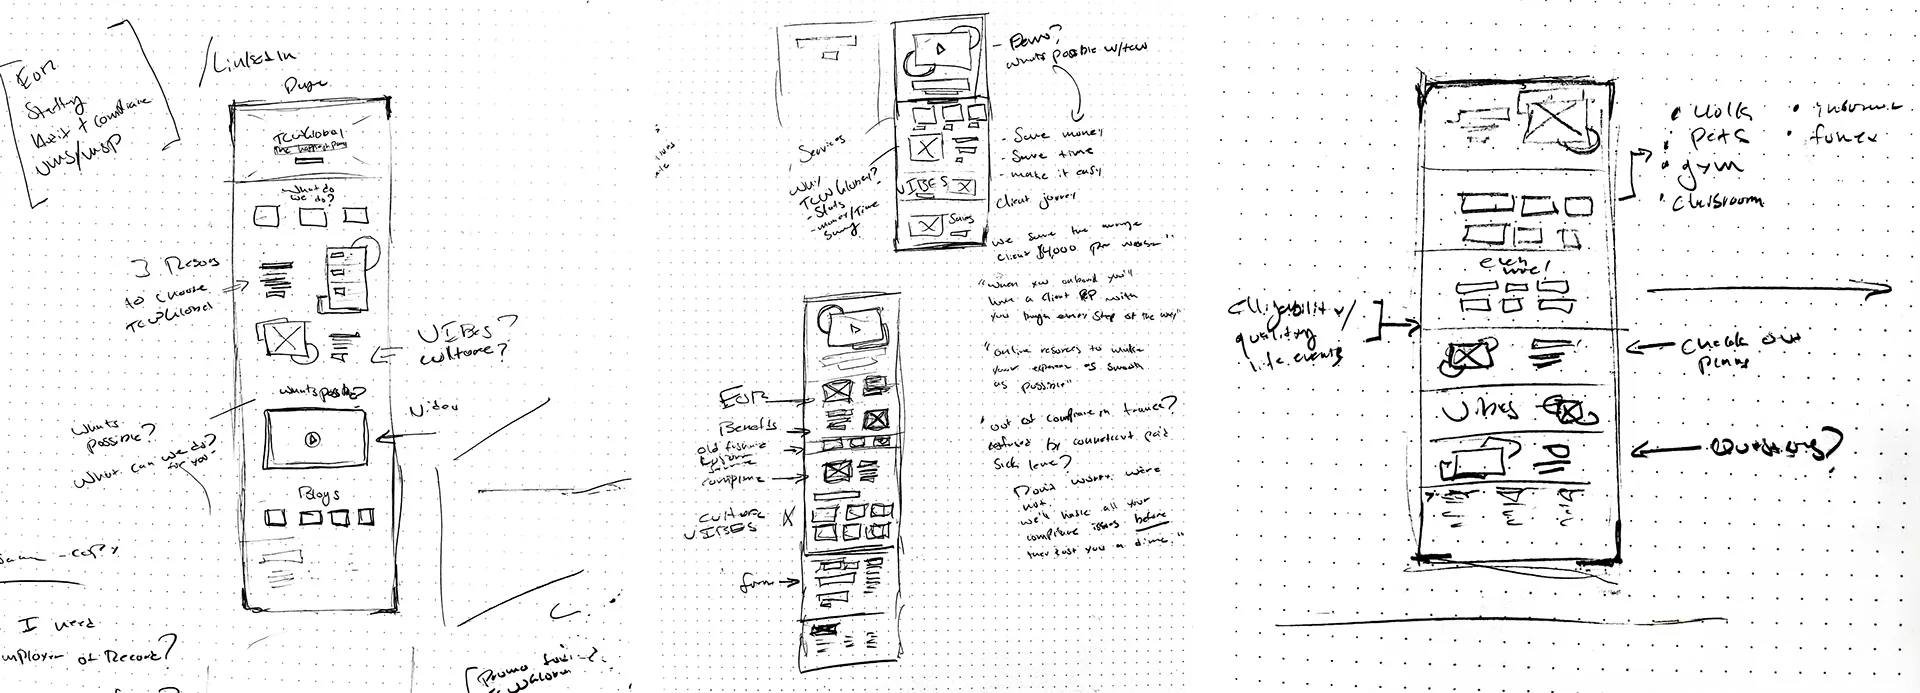 EOR
Staffing
Audit + compliance
VMS/MSP
/LinkedIn
Page
TCWGlobal
The happiest place
What do
we do?
3 Reasons
to choose
TCWGlobal
VIBES?
culture?
What's possible?
Video
What's
possible?
What can we do?
for you
Blogs
copy
I need
Employer of Record?
Promo
TCWGlobal
- Demo?
What's possible w/tcw
- Save money
- Save time
- make it easy
Services
Why
TCWGlobal?
- Stats
- money/time
Saving
VIBES
Client journey
We save the average
client $4,000 per worker"
"When you onboard you'll
have a client REP with
you through every step of the way"
"online resources to make
your experience as smooth
as possible"
"out of compliance in France?
confused by connecticut paid
sick leave?
Don't worry we're
not.
we'll handle all your
compliance issues before
they cost you a dime."
EOR
Benefits
old fashioned
compliance
Culture
VIBES
form
• Walks
• Pets
• gym
• classroom
• funez
even
more!
Eligibility/
qualifying
life events
Check out
plans
Vibes
Questions?